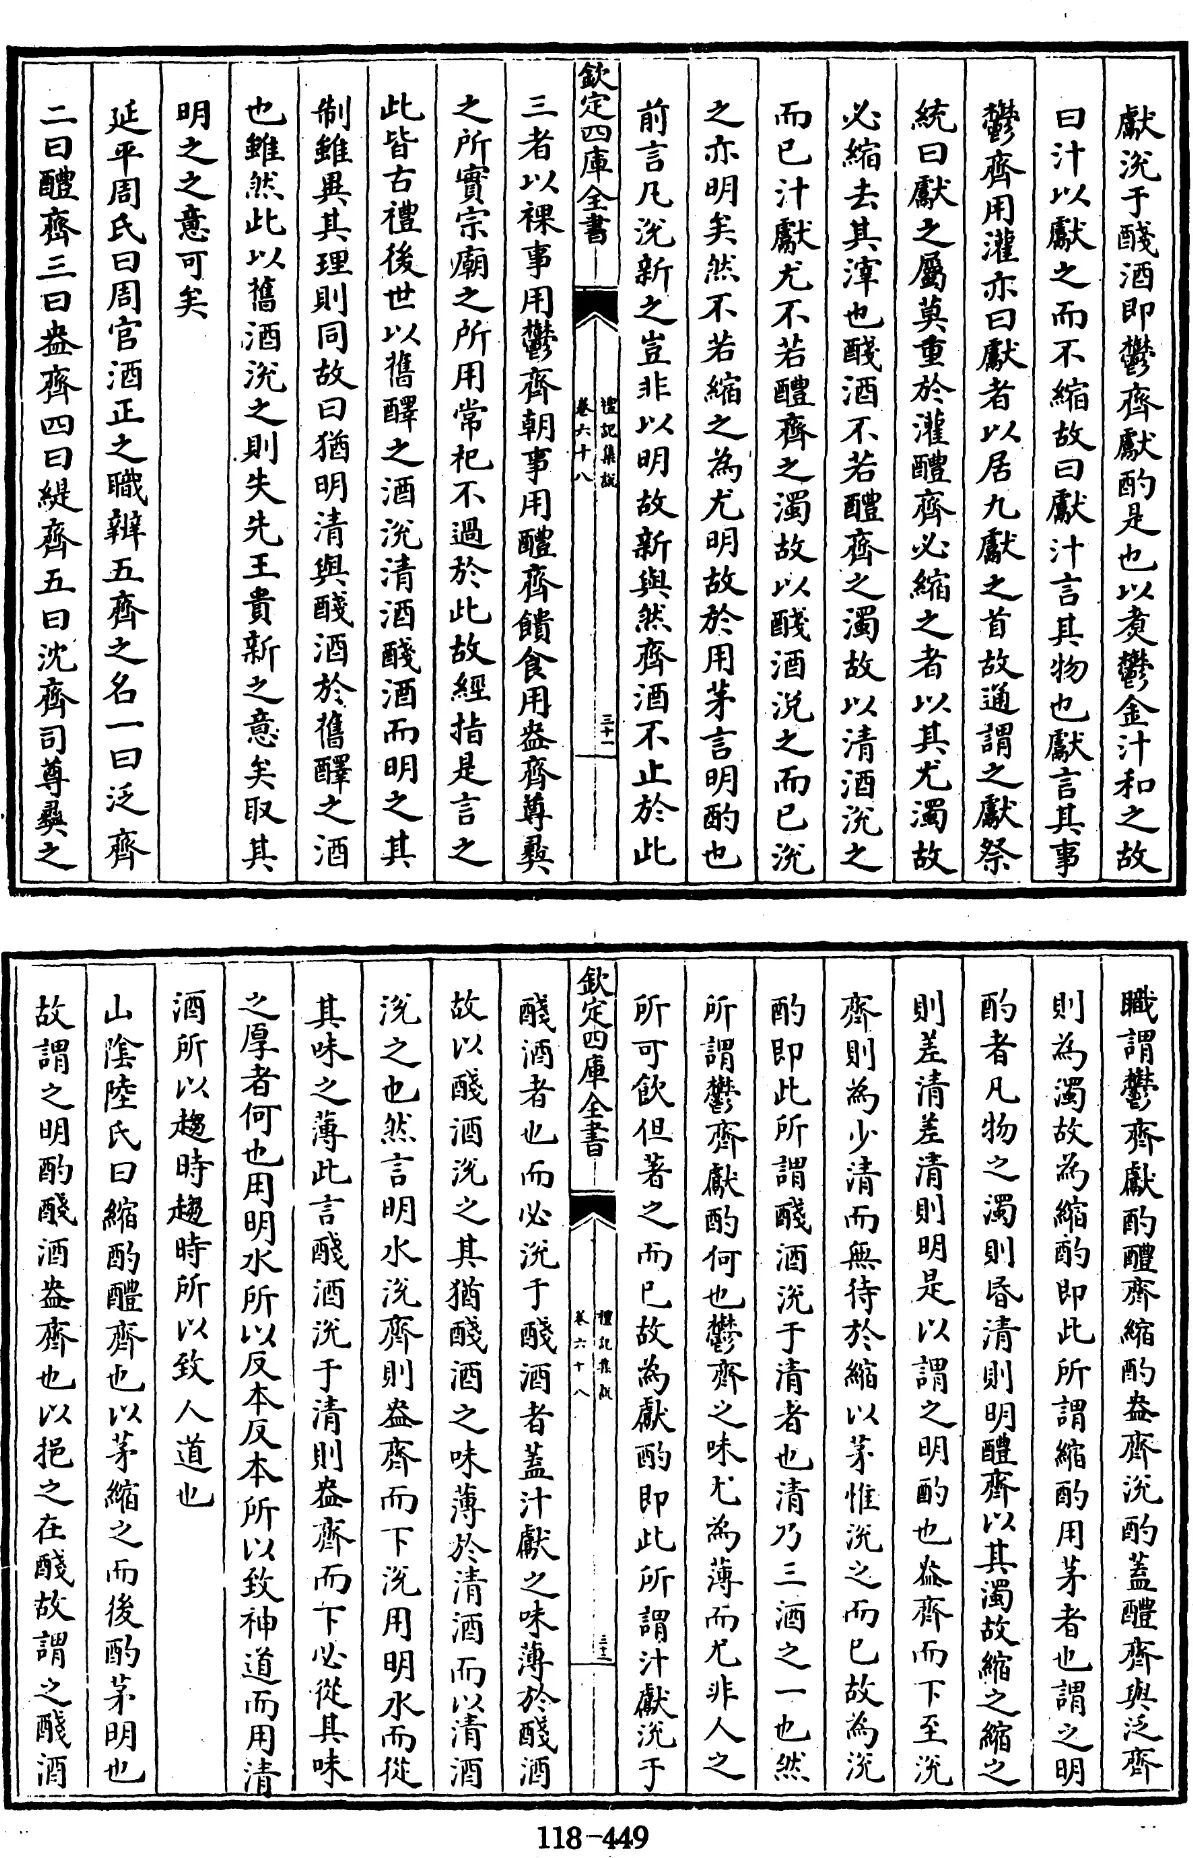 獻涚于醆酒即鬱齊獻酌是也以煑鬱金汁和之故
曰汁以獻之而不縮故曰獻汁言其物也獻言其事
鬱齊用灌亦曰獻者以居九獻之首故通謂之獻祭
統曰獻之屬莫重於灌醴齊必縮之者以其尤濁故
必縮去其滓也醆酒不若醴齊之濁故以清酒涚之
而已汁獻尤不若醴齊之濁故以醆酒涚之而已涚
之亦明矣然不若縮之為尤明故於用茅言明酌也
前言凡涚新之豈非以明故新與然齊酒不止於此
欽定四庫全書
禮記集說
卷六十八
三十一
三者以祼事用鬱齊朝事用醴齊饋食用盎齊尊彞
之所實宗廟之所用常祀不過於此故經指是言之
此皆古禮後世以舊醳之酒涚清酒醆酒而明之其
制雖異其理則同故曰猶明清與醆酒於舊醳之酒
也雖然此以舊酒涚之則失先王貴新之意矣取其
明之之意可矣
延平周氏曰周官酒正之職辨五齊之名一曰泛齊
二曰醴齊三曰盎齊四曰緹齊五曰沈齊司尊彞之
職謂鬱齊獻酌醴齊縮酌盎齊涚酌蓋醴齊與泛齊
則為濁故為縮酌即此所謂縮酌用茅者也謂之明
酌者凡物之濁則昏清則明醴齊以其濁故縮之縮之
則差清差清則明是以謂之明酌也盎齊而下至沈
齊則為少清而無待於縮以茅惟涚之而已故為涚
酌即此所謂醆酒涚于清者也清乃三酒之一也然
所謂鬱齊獻酌何也鬱齊之味尤為薄而尤非人之
所可飲但著之而已故為獻酌即此所謂汁獻涚于
欽定四庫全書
禮記集說
卷六十八
三十二
醆酒者也而必涚于醆酒者蓋汁獻之味薄於醆酒
故以醆酒涚之其猶醆酒之味薄於清酒而以清酒
涚之也然言明水涚齊則盎齊而下涚用明水而從
其味之薄此言醆酒涚于清則盎齊而下必從其味
之厚者何也用明水所以反本反本所以致神道而用清
酒所以趨時趨時所以致人道也
山陰陸氏曰縮酌醴齊也以茅縮之而後酌茅明也
故謂之明酌醆酒盎齊也以挹之在醆故謂之醆酒
118-449